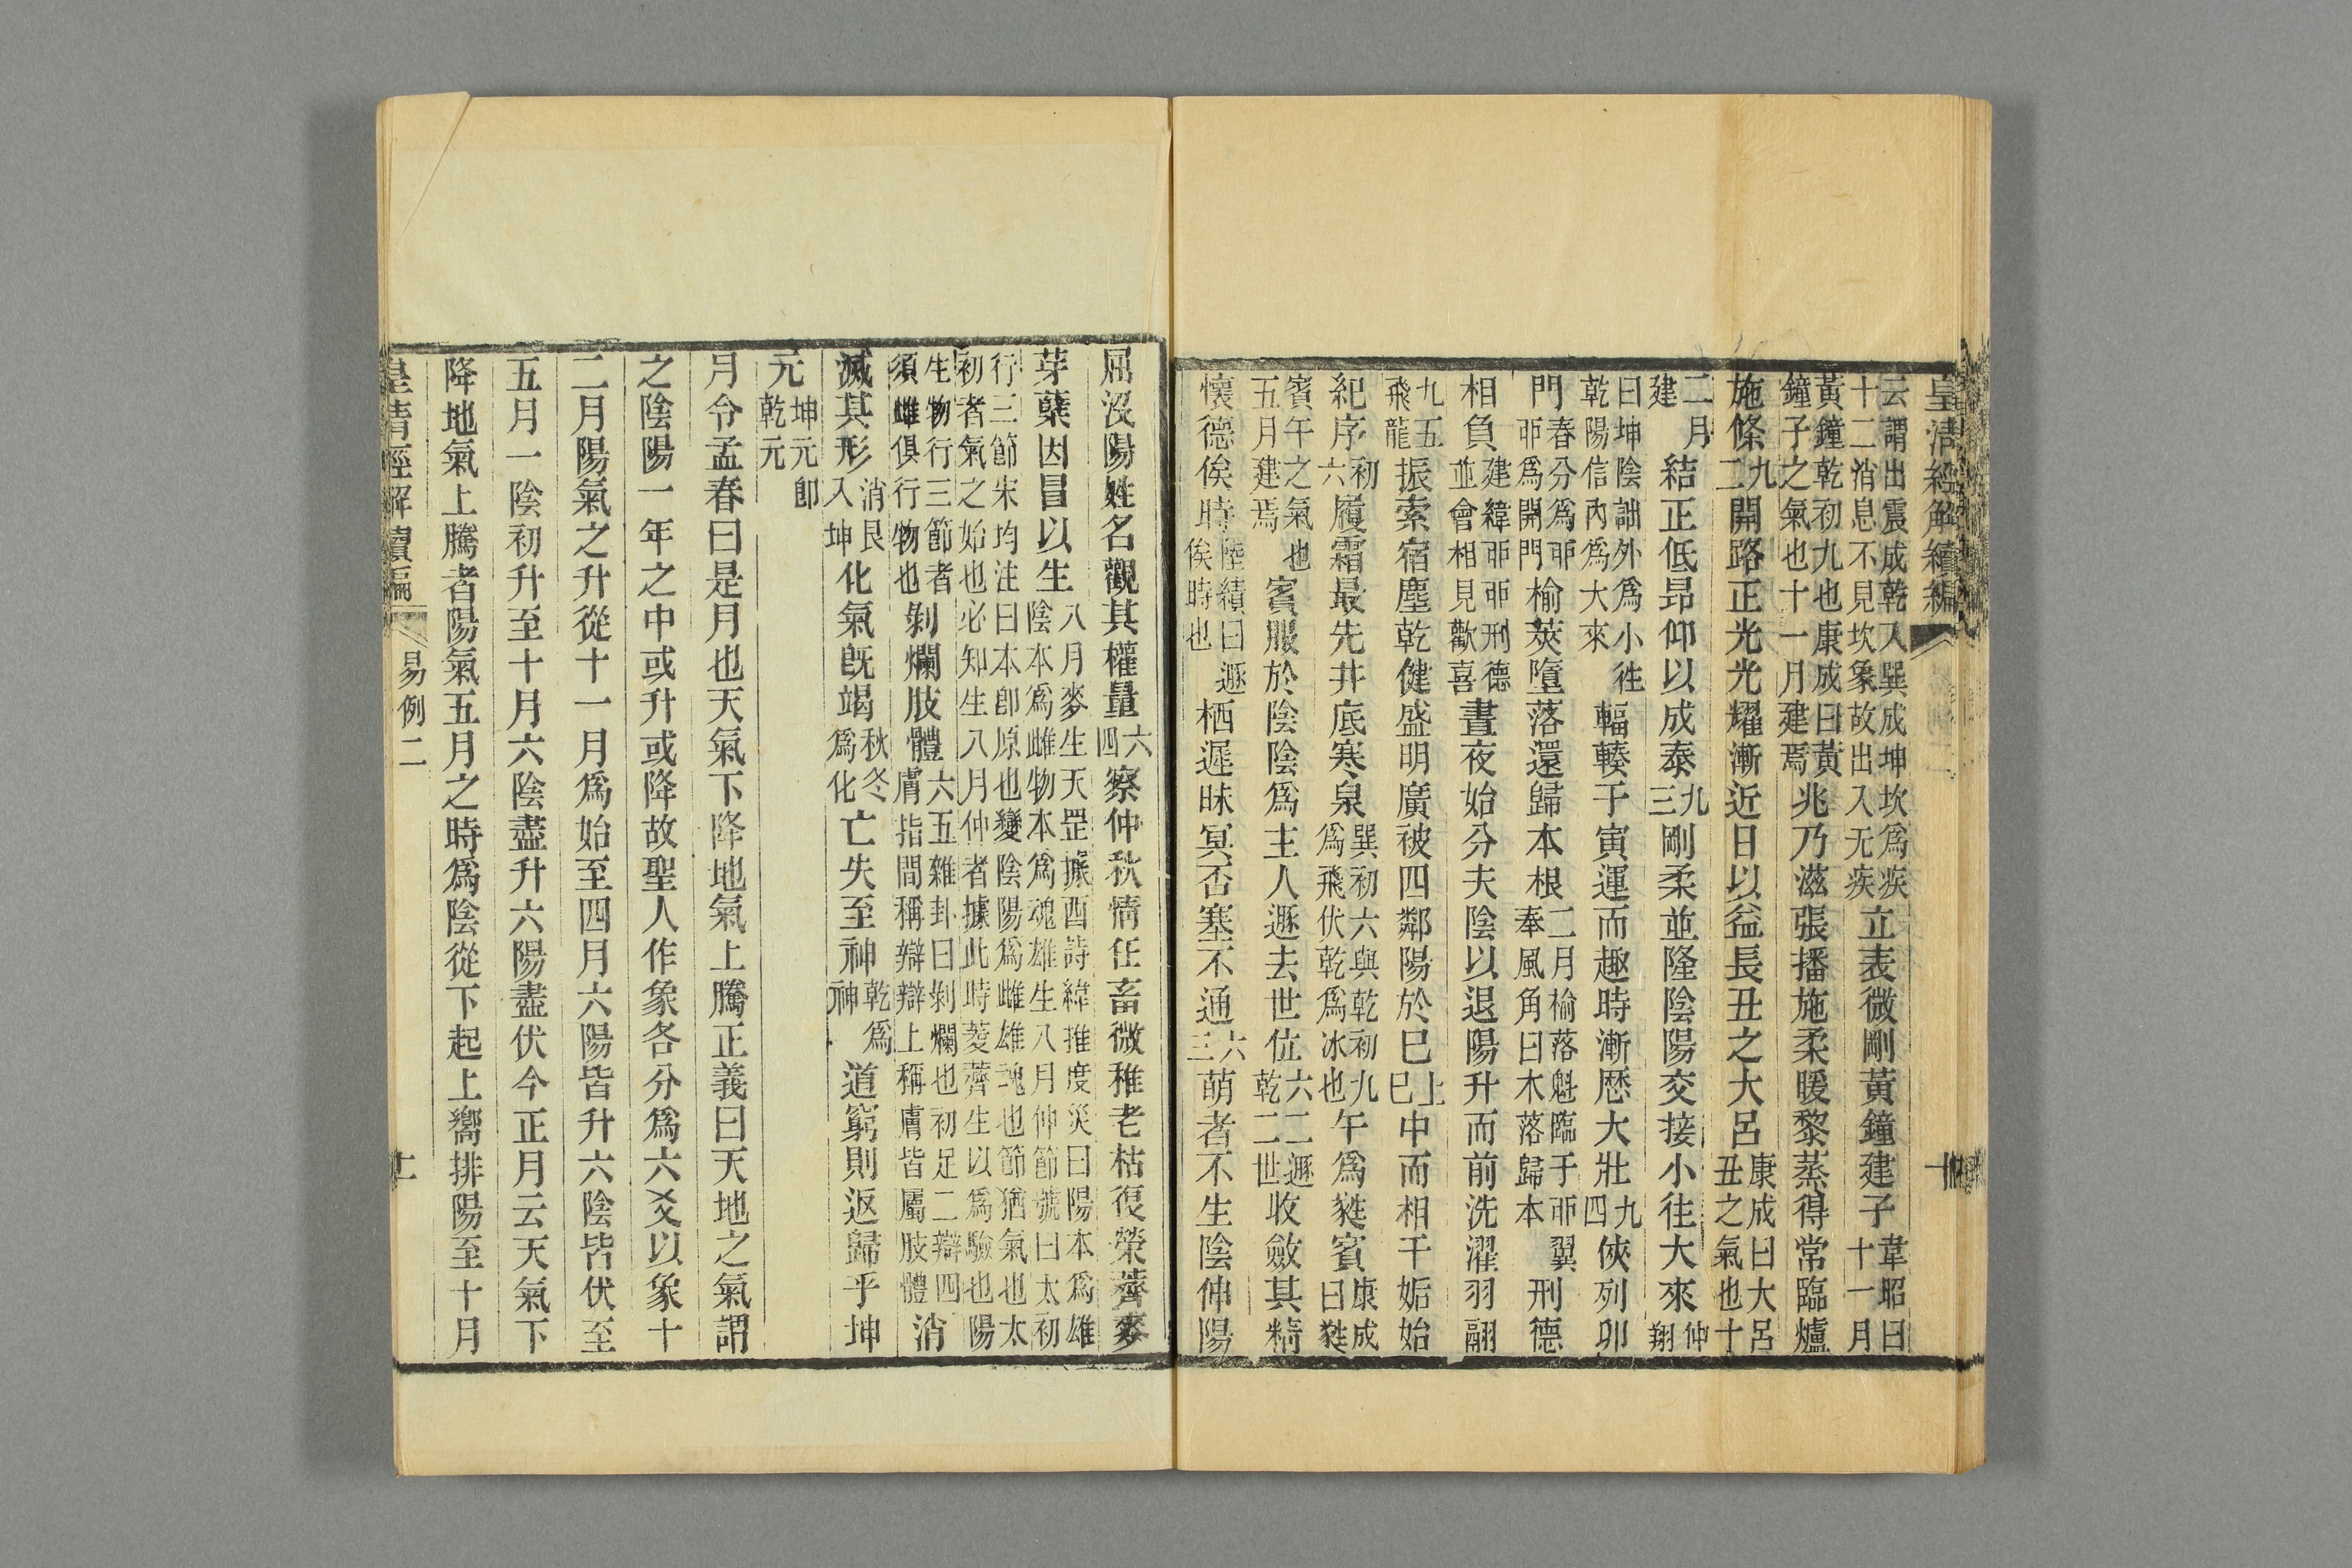 皇清經解續編
云謂出震成乾入巽成坤坎爲疾十二消息不見坎象故出入无疾立表微剛黃鐘建子韋昭曰十一月
黃鐘乾初九也康成曰黃鐘子之氣也十一月建焉兆乃滋張播施柔暖黎蒸得常臨爐
施條九二開路正光光耀漸近日以益長丑之大呂康成曰大呂丑之氣也十
二月建結正低昂仰以成泰九三剛柔並隆陰陽交接小往大來仲翔
曰坤陰詘外爲小往乾陽信內爲大來輻輳于寅運而趣時漸歷大壯九四俠列卯
門春分爲卯卯爲開門榆莢墮落還歸本根二月榆落魁臨于卯翼奉風角曰木落歸本刑德
相負建緯卯卯刑德並會相見歡喜晝夜始分夫陰以退陽升而前洗濯羽翮
九五飛龍振索宿塵乾健盛明廣被四鄰陽於巳上巳中而相干姤始
紀序初六履霜最先井底寒泉巽初六與乾初九爲飛伏乾爲冰也午爲蕤賓康成曰蕤
賓午之氣也五月建焉賓服於陰陰爲主人遯去世位六二遯乾二世收斂其精
懷德俟時陸績曰遯俟時也栖遲昧冥否塞不通六三萌者不生陰伸陽
屈沒陽姓名觀其權量六四察仲秋情任畜微稚老枯復榮薺麥
芽櫱因冒以生八月麥生天罡據酉詩緯推度災曰陽本爲雄陰本爲雌物本爲魂雄生八月仲節號曰太初
行三節宋均注曰本卽原也變陰陽爲雌雄魂也節猶氣也太初者氣之始也必知生八月仲者據此時薺生以爲驗也陽
生物行三節者須雌俱行物也剝爛肢體六五雜卦曰剝爛也初足二辯四膚指間稱辯辯上稱膚皆屬肢體消
滅其形消艮入坤化氣既竭秋冬爲化亡失至神乾爲神道窮則返歸乎坤
元坤元卽乾元
月令孟春曰是月也天氣下降地氣上騰正義曰天地之氣謂
之陰陽一年之中或升或降故聖人作象各分爲六爻以象十
二月陽氣之升從十一月爲始至四月六陽皆升六陰皆伏至
五月一陰初升至十月六陰盡升六陽盡伏今正月云天氣下
降地氣上騰者陽氣五月之時爲陰從下起上嚮排陽至十月
皇清經解續編 易例二 十二